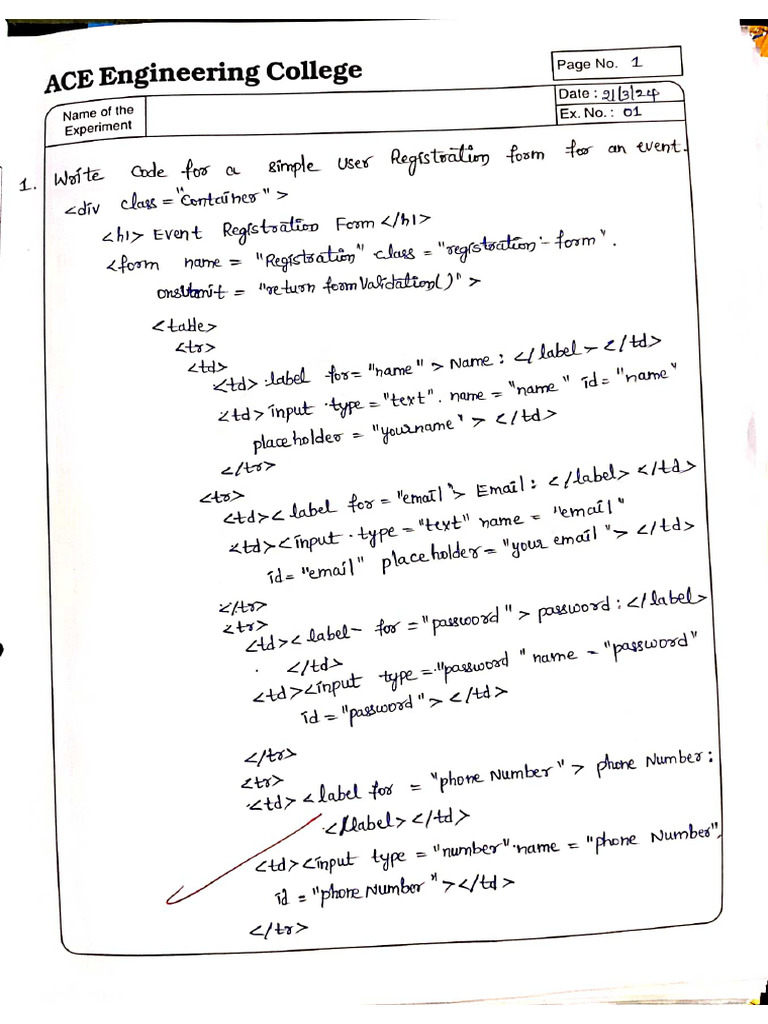 ACE Engineering College
Page No. 1
Name of the
Experiment
Date : 21/3/24
Ex. No. : 01
1. Write Code for a simple User Registration form for an event.
<div class = "Container" >
<h1> Event Registration Form </h1>
<form name = "Registration" class = "registration - form".
onsubmit = "return formValidation()" >
<table>
<tr>
<td>
<td> label for= "name" > Name : </label> </td>
<td> input type = "text". name = "name" id = "name"
placeholder = "yourname" > </td>
</tr>
<tr>
<td>< label for = "email"> Email : </label> </td>
<td><input type = "text" name = "email"
id = "email" placeholder = "your email "> </td>
</tr>
<tr>
<td>< label for = "password" > password : </label>
</td>
<td><input type = "password " name = "password"
id = "password" > </td>
</tr>
<tr>
<td> <label for = "phone Number" > phone Number :
</label> </td>
<td><input type = "number" name = "phone Number"
id = "phone Number "></td>
</tr>